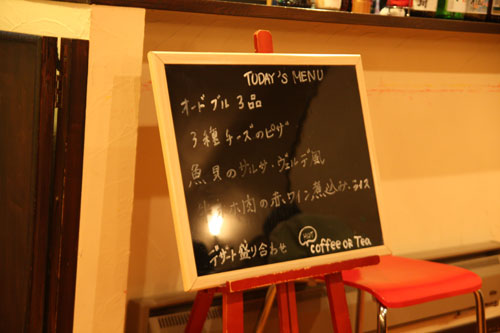 TODAY'S MENU
オードブル 3品
3種チーズのピザ
魚貝のサルサ・ヴェルデ風
ホホ肉の赤ワイン煮込み ライス
デザート盛り合わせ
HOT coffee or Tea